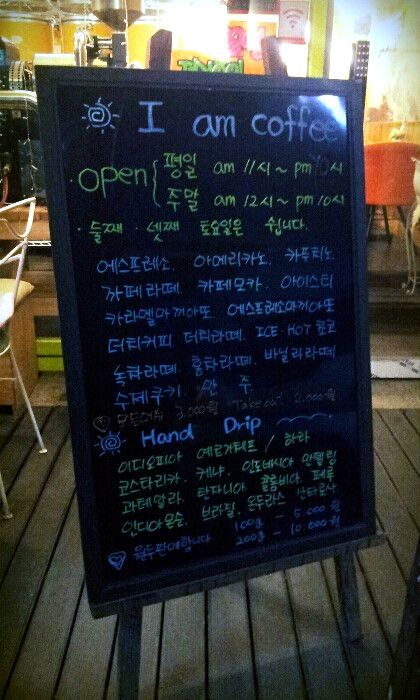 I am coffee
open { 평일 am 11시~ pm 10시
주말 am 12시~ pm 10시
· 둘째 · 셋째 토요일은 쉽니다.
에스프레소. 아메리카노. 카푸치노.
카페라떼. 카페모카. 아이스티
카라멜마끼아또. 에스프레소마끼아또
더티커피 더티라떼. ICE HOT 쵸코
녹차라떼. 홍차라떼. 바닐라라떼
수제쿠키 안 주.
모든메뉴 3,000원 Take out 2,000원
Hand Drip
이디오피아 예르가체프 / 하라
코스타리카. 케냐. 인도네시아 만델링
과테말라. 탄자니아 콜롬비아. 페루
인디아몬순. 브라질. 온두라스
원두판매합니다 100g - 5,000원
200g - 10,000원